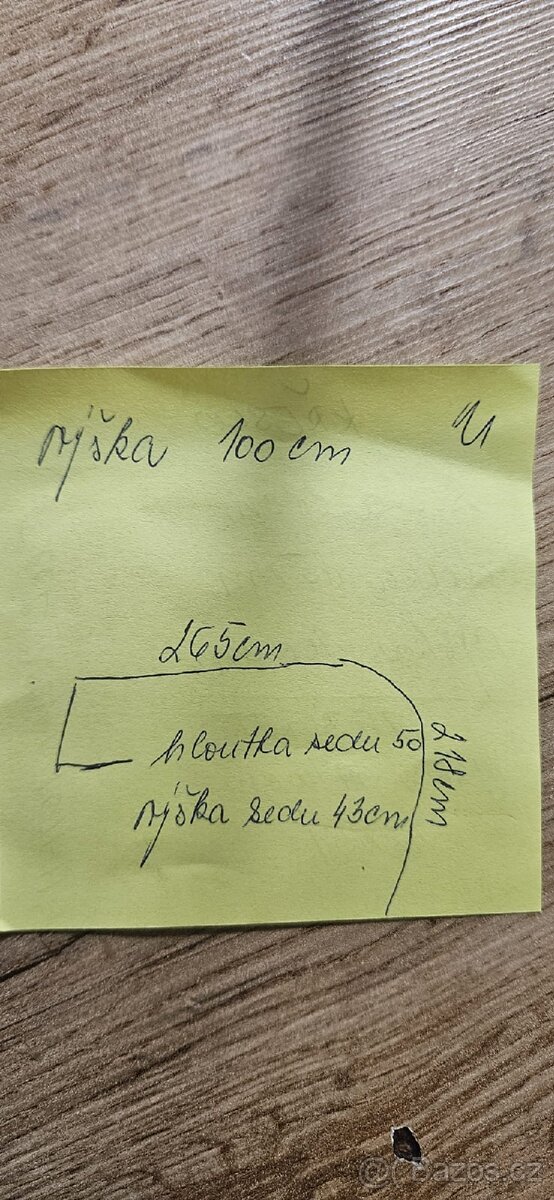 výška 100 cm
265cm
hloubka sedu 50
218cm
výška sedu 43cm
Bazos.cz